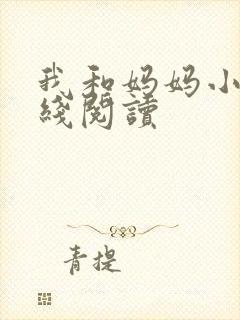 我和妈妈小
綫閱讀
青提